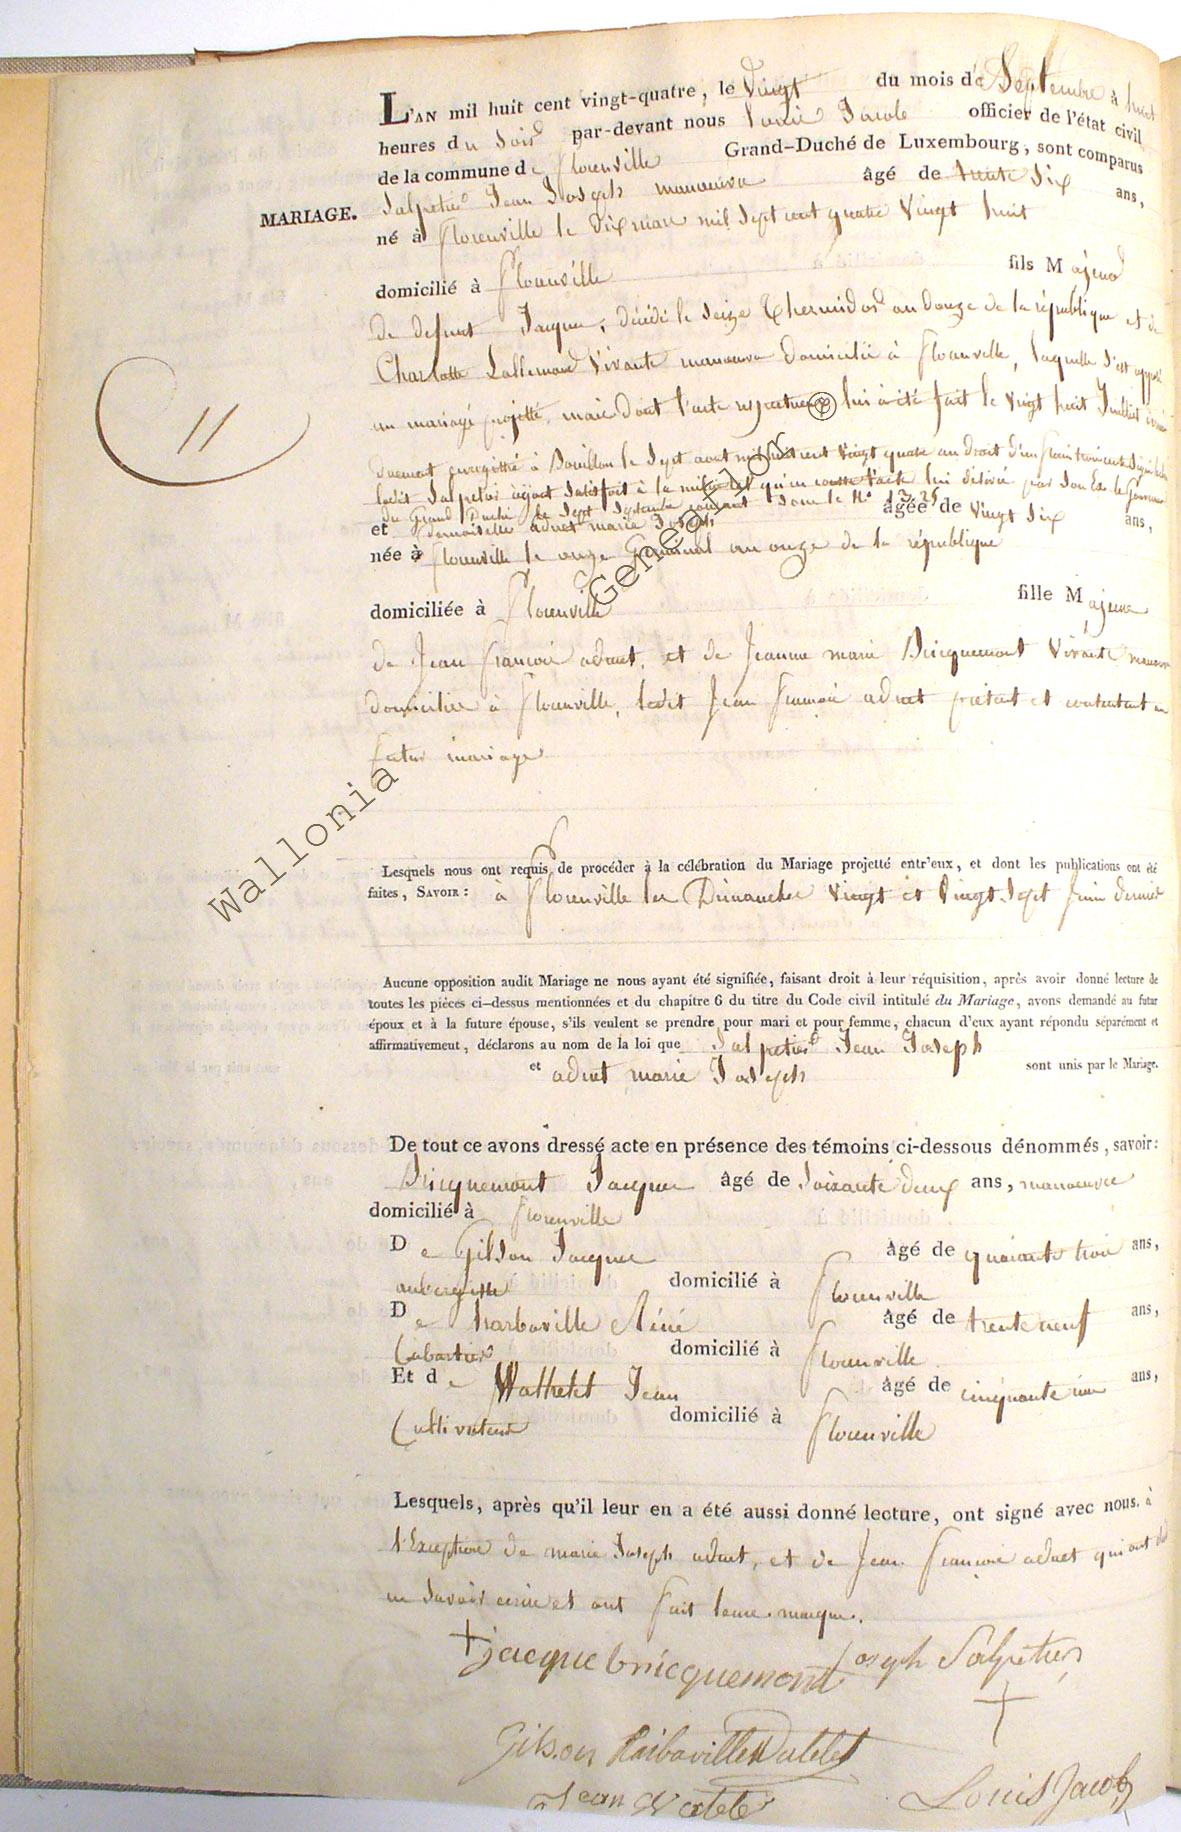 L'AN mil huit cent vingt-quatre, le Vingt du mois de Septembre à huit
heures du soir par-devant nous Louis Jacob officier de l'état civil
de la commune de florenville Grand-Duché de Luxembourg, sont comparus
MARIAGE.
Salpetier Jean Joseph manoeuvre âgé de trente Six ans,
né à florenville le Dix mars mil Sept cent quatre Vingt huit
domicilié à florenville fils Majeur
de defunt Jacque, décédé le Seize Thermidor an douze de la république et de
Charlotte Lallemand Vivante manoeuvre domiciliée à florenville, laquelle s'est opposé
au mariage projetté, mais dont l'acte respectueux lui à été fait le Vingt huit Juillet
11
Duement enregistré à Bouillon le Sept aout mil huit cent Vingt quatre au droit d'un
ledit Salpetier ayant Satisfait à la milice qu'un acte lui délivré par Son Ex. le Gouverneur
du Grand Duché le Sept Septembre courant Sous le N° 1325
et demoiselle adnet marie Joseph âgée de Vingt Six ans,
née à florenville le onze Germinal an onze de la république
domiciliée à florenville fille Majeure
de Jean françois adnet, et de Jeanne marie Bricquemont Vivante manoeuvre
domiciliés à florenville, ledit Jean françois adnet présent et consentant au
futur mariage
Lesquels nous ont requis de procéder à la célébration du Mariage projetté entr'eux, et dont les publications ont été
faites, SAVOIR : à florenville les Dimanches Vingt et Vingt Sept Juin dernier
Aucune opposition audit Mariage ne nous ayant été signifiée, faisant droit à leur réquisition, après avoir donné lecture de
toutes les pièces ci-dessus mentionnées et du chapitre 6 du titre du Code civil intitulé du Mariage, avons demandé au futur
époux et à la future épouse, s'ils veulent se prendre pour mari et pour femme, chacun d'eux ayant répondu séparément et
affirmativement, déclarons au nom de la loi que Salpetier Jean Joseph
et adnet marie Joseph sont unis par le Mariage.
De tout ce avons dressé acte en présence des témoins ci-dessous dénommés, savoir :
Bricquemont Jacque âgé de Soixante deux ans, manoeuvre
domicilié à florenville
De Gilson Jacque âgé de quarante trois ans,
aubergiste domicilié à florenville
De harbaville Réné âgé de trente neuf ans,
Cabartier domicilié à florenville
Et de Wathelet Jean âgé de cinquante un ans,
Cultivateur domicilié à florenville
Lesquels, après qu'il leur en a été aussi donné lecture, ont signé avec nous. à
l'exception de marie Joseph adnet, et de Jean françois adnet qui ont dit
ne Savoir ecrire et ont fait leure marque.
jacque bricquemont Joseph Salpetier
Gilson
Jean Louis Jacob
Wallonia Genealor ©